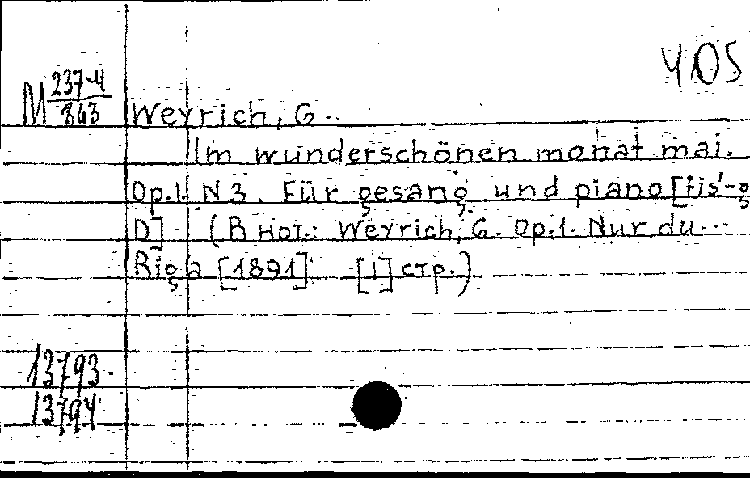 405
M 237-4
863
Weyrich, G.
Im wunderschönen monat mai.
Op.1. N3. Für gesang und piano [fis'-g
D] (В нот.: Weyrich, G. Op.1. Nur du...
Riga [1891] [1] стр.)
13793
13794